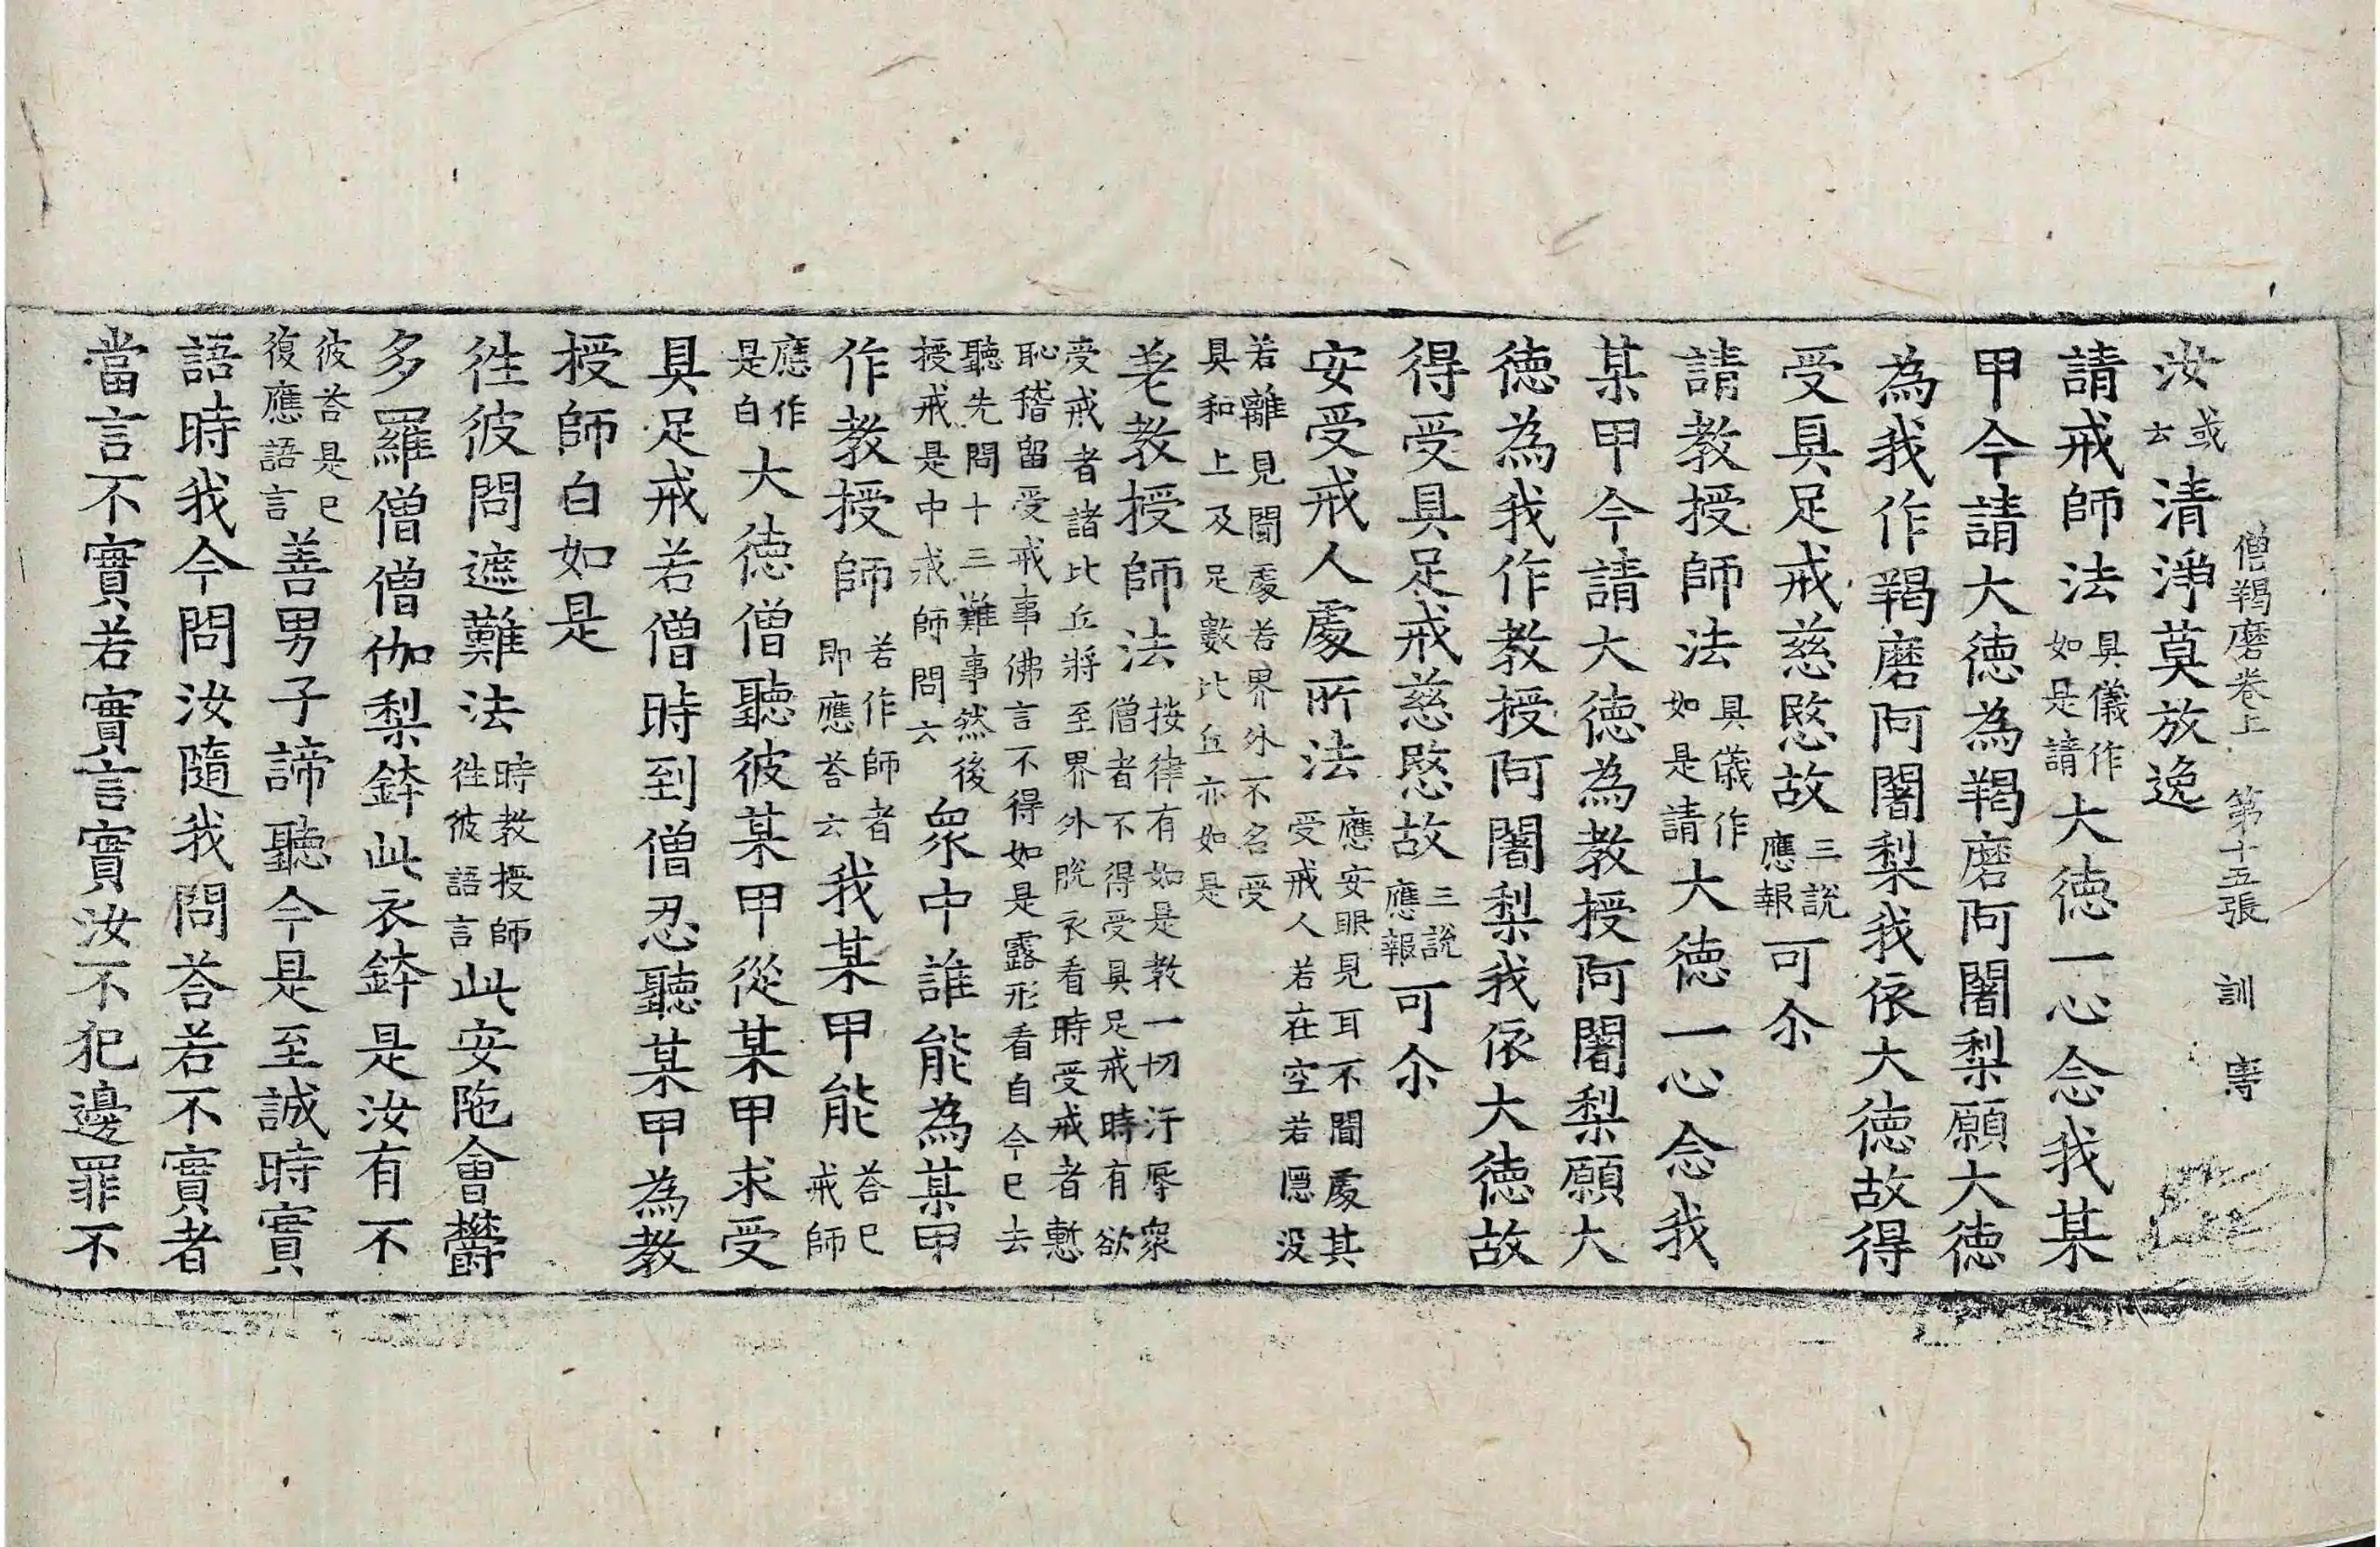 僧羯磨卷上　第十五張　訓
汝或云清淨莫放逸
請戒師法具儀作如是請大德一心念我某
甲今請大德為羯磨阿闍梨願大德
為我作羯磨阿闍梨我依大德故得
受具足戒慈愍故三說應報可尒
請教授師法具儀作如是請大德一心念我
某甲今請大德為教授阿闍梨願大
德為我作教授阿闍梨我依大德故
得受具足戒慈愍故三說應報可尒
安受戒人處所法應安眼見耳不聞處其受戒人若在空若隱沒
若離見聞處若界外不名受具和上及足數比丘亦如是
差教授師法按律有如是教一切汙辱衆僧者不得受具足戒時有欲
受戒者諸比丘將至界外脫衣看時受戒者慙恥稽留受戒事佛言不得如是露形看自今已去
聽先問十三難事然後授戒是中戒師問云衆中誰能為某甲
作教授師若作師者即應荅云我某甲能荅已戒師
應作是白大德僧聽彼某甲從某甲求受
具足戒若僧時到僧忍聽某甲為教
授師白如是
徃彼問遮難法時教授師徃彼語言此安陁會鬱
多羅僧僧伽梨鉢此衣鉢是汝有不
彼荅是已復應語言善男子諦聽今是至誠時實
語時我今問汝隨我問荅若不實者
當言不實若實言實汝不犯邊罪不